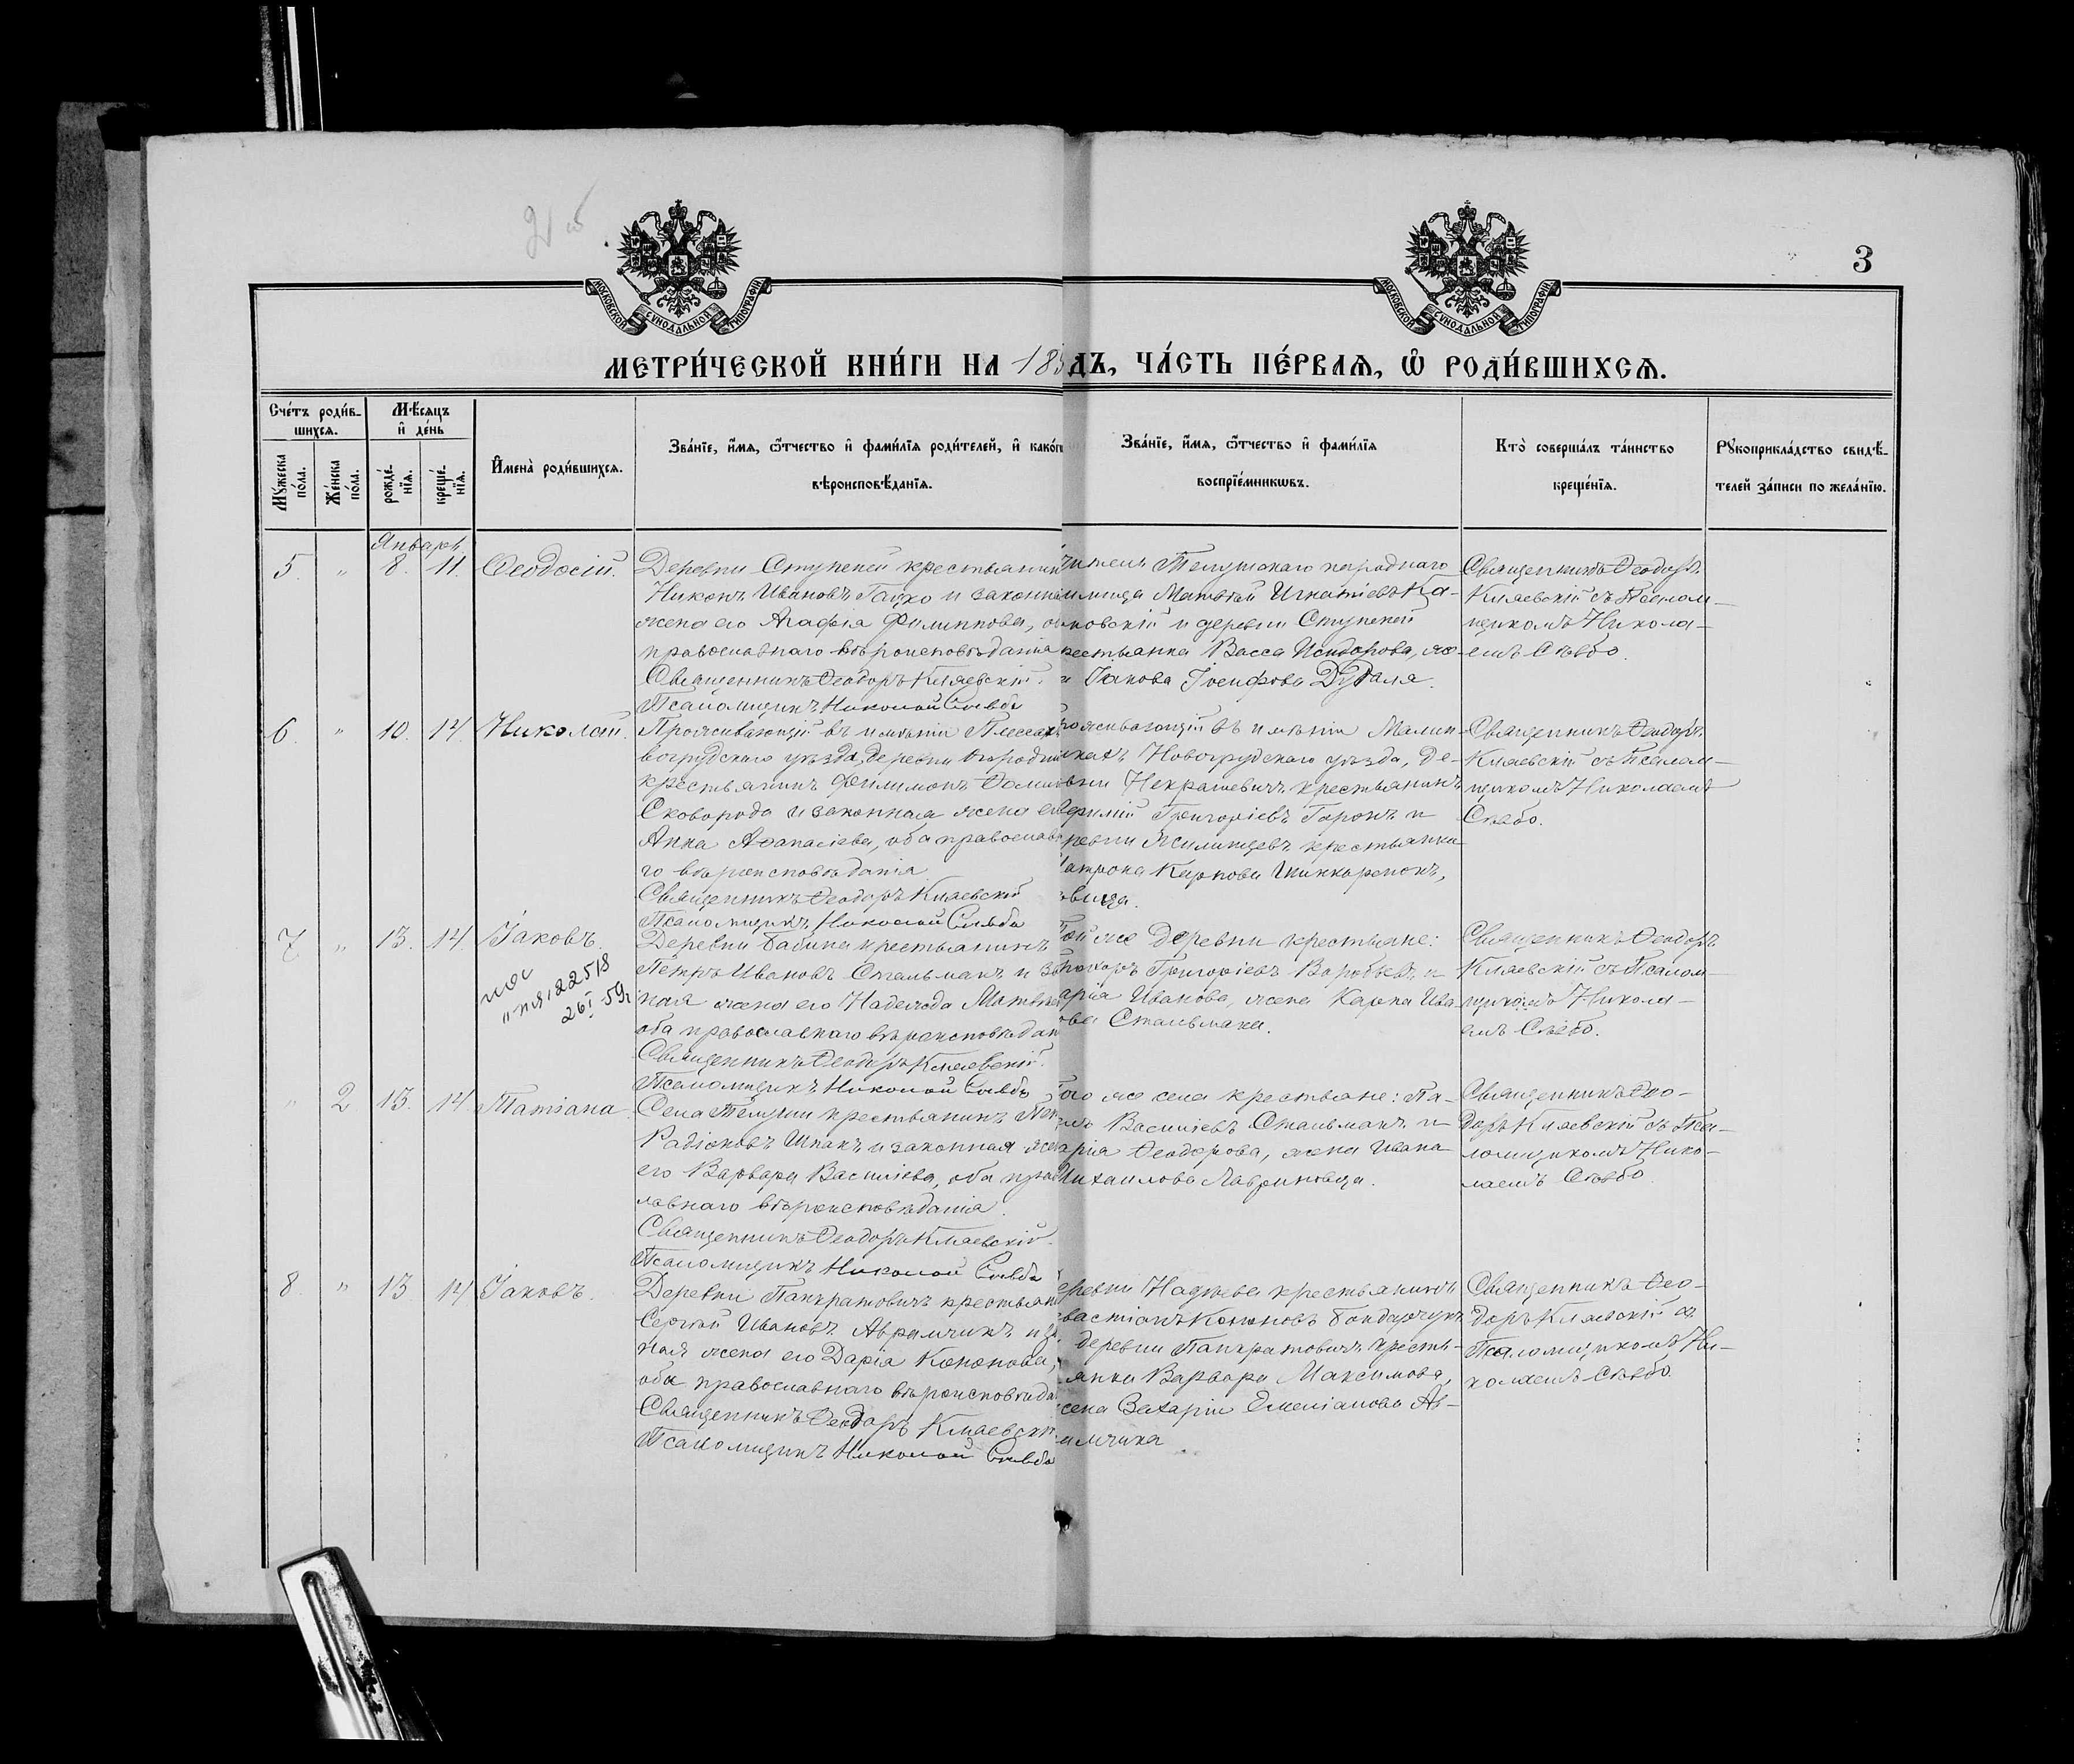 3
МОСКОВСКОЙ СѴНОДАЛЬНОЙ ТИПОГРАФІИ
МОСКОВСКОЙ СѴНОДАЛЬНОЙ ТИПОГРАФІИ
МЕТРИ́ЧЕСКОЙ КНИ́ГИ НА 18
ДЪ, ЧА́СТЬ ПЕ́РВАѦ, Ѡ҆ РОДИ́ВШИХСѦ.
Сче́тъ роди́в-
шихсѧ.
Мꙋжеска
по́ла.
Же́нска
по́ла.
Мѣ́сѧцъ
и҆ де́нь
рожде́-
нїѧ.
креще́-
нїѧ.
И҆мена̀ роди́вшихсѧ.
Зва́нїе, и҆́мѧ, ѻ҆́тчество и҆ фами́лїѧ роди́телей, и҆ како́г
вѣроисповѣ́данїѧ.
Зва́нїе, и҆́мѧ, ѻ҆́тчество и҆ фами́лїѧ
воспрїе́мникѡвъ.
Кто̀ соверша́лъ та́инство
креще́нїѧ.
Рꙋкоприкла́дство свидѣ́-
телей за́писи по жела́нїю.
Январь
5. " 8. 11. Ѳеодосій.
Деревни Ступеней крестьянин
Никонъ Ивановъ Гацко и законна
жена его Агафія Филиппова, о
православнаго вѣроисповѣданія
Священникъ Ѳеодоръ Кляевскій.
Псаломщикъ Николай Слѣбо
Телушскаго народнаго
Матвѣй Игнатіевъ Ка-
новскій и деревни Ступеней
крестьянка Васса Исидорова, же-
на Іакова Іосифова Дубаля.
Священникъ Ѳеодоръ
Кляевскій съ Псалом-
щикомъ Никола-
емъ Слѣбо.
6. " 10. 14. Николай.
Проживающій въ имѣніи Плесах
вогрудскаго уѣзда, деревни
крестьянинъ Филимонъ
Сковорода и законная жена ег
Анна Аѳанасіева, оба православ
го вѣроисповѣданія
Священникъ Ѳеодоръ Кляевскій
Псаломщикъ Николай Слѣбо
роживающій въ имѣніи Малин
кахъ Новогрудскаго уѣзда, де-
вни Некрашевичъ крестьянинъ
Григоріевъ Гаронъ и
ревни Жилищевъ крестьянка
атрона Карпова
вица.
Священникъ Ѳеодоръ
Кляевскій съ Псалом-
щикомъ Николаемъ
Слѣбо.
7 " 13. 14. Іаковъ.
22518
26 I 59г
Деревни Бабина крестьянинъ
Петръ Ивановъ Стельмахъ и за
ная жена его Надежда Матвѣ
оба православнаго вѣроисповѣдан
Священникъ Ѳеодоръ Кляевскій.
Псаломщикъ Николай Слѣбо
Той же деревни крестьяне:
Прохоръ Григоріевъ Воробьевъ и
арія Иванова, жена Карпа Ива
ова Стельмаха.
Священникъ Ѳеодоръ
Кляевскій съ Псалом-
щикомъ Никола-
емъ Слѣбо.
" 2 13. 14. Татіана.
Села Телуши крестьянинъ
Радіоновъ Шпакъ и законная же
его Варвара Василіева, оба прав
лавнаго вѣроисповѣданія.
Священникъ Ѳеодоръ Кляевскій.
Псаломщикъ Николай Слѣбо
Того же села крестьяне: Па-
лъ Василіевъ Стельмахъ и
арія Ѳеодорова, жена Ивана
Михаилова Лавриновца.
Священникъ Ѳео-
доръ Кляевскій съ Пса-
ломщикомъ Нико-
лаемъ Слѣбо.
8. " 13 14 Іаковъ.
Деревни Панкратовичъ крестьян
Сергѣй Ивановъ Аврамчикъ и за
ная жена его Дарія Кононова,
оба православнаго вѣроисповѣда
Священникъ Ѳеодоръ Кляевскі
Псаломщикъ Николай Слѣбо
еревни крестьянинъ
вастіанъ Кононовъ Бондарчукъ
деревни Панкратовичъ кресть-
янка Варвара Максимова,
жена Захаріи Емеліанова Ав-
амчика.
Священникъ Ѳео-
доръ Кляевскій съ
Псаломщикомъ Ни-
колаемъ Слѣбо.